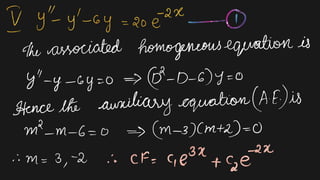 V y'' - y' - 6y = 20e^{-2x} ——— ①
The associated homogeneous equation is
y'' - y - 6y = 0 ⟹ (D² - D - 6)y = 0
Hence the auxiliary equation (A.E.) is
m² - m - 6 = 0 ⟹ (m-3)(m+2) = 0
∴ m = 3, -2 ∴ CF = c₁e^{3x} + c₂e^{-2x}